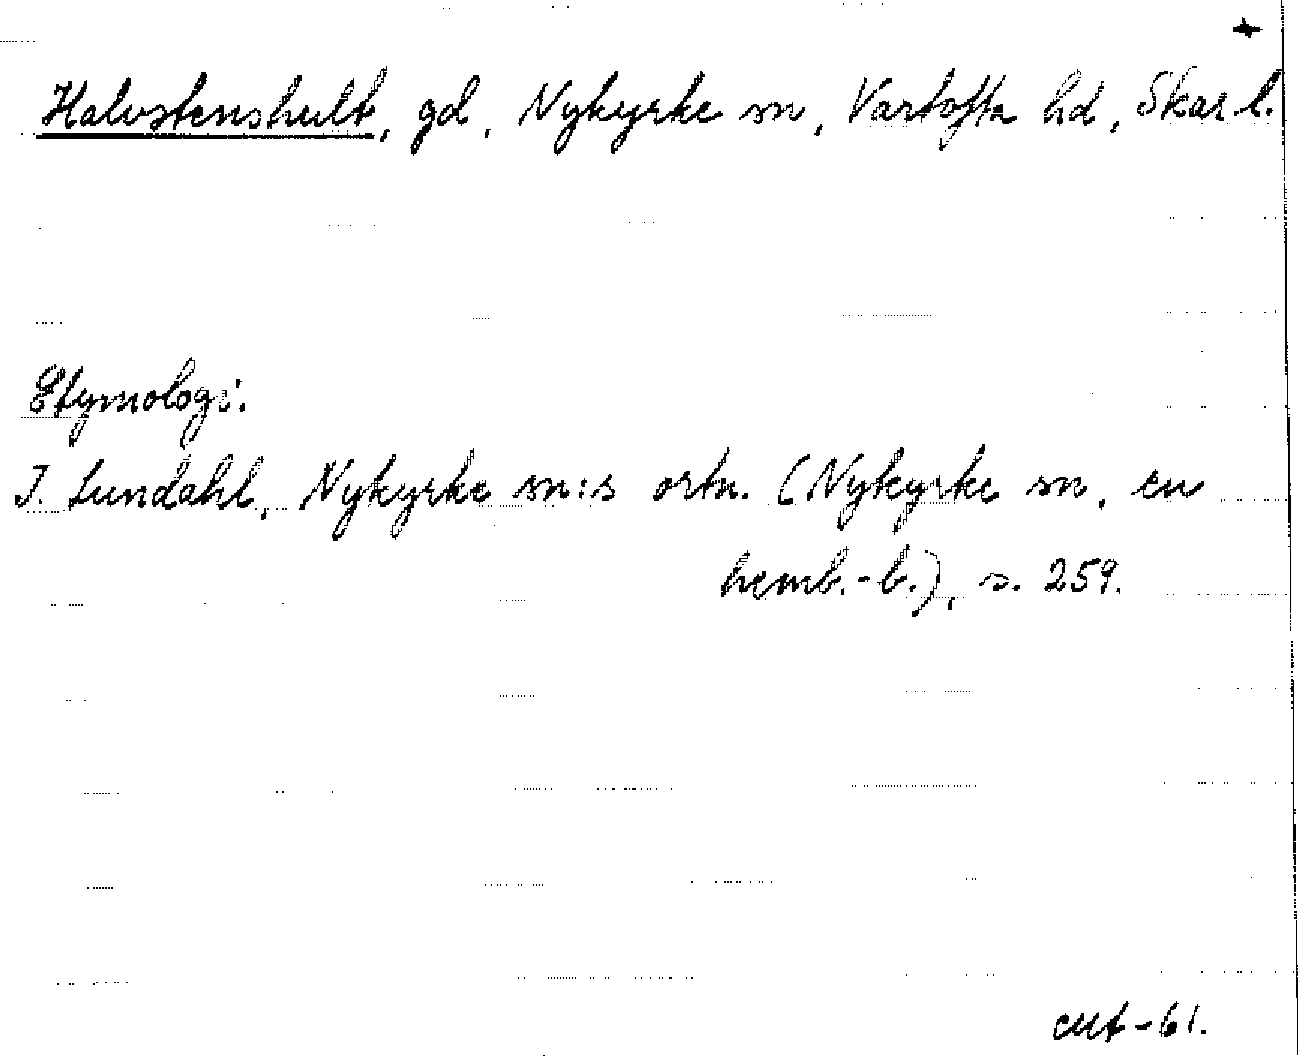 Halvstenshult, gd, Nykyrke sn, Vartofta hd, Skar. l.
Etymologi.
I. Lundahl, Nykyrke sn:s ortn. (Nykyrke sn, en
hemb.-b.), s. 259.
-61.